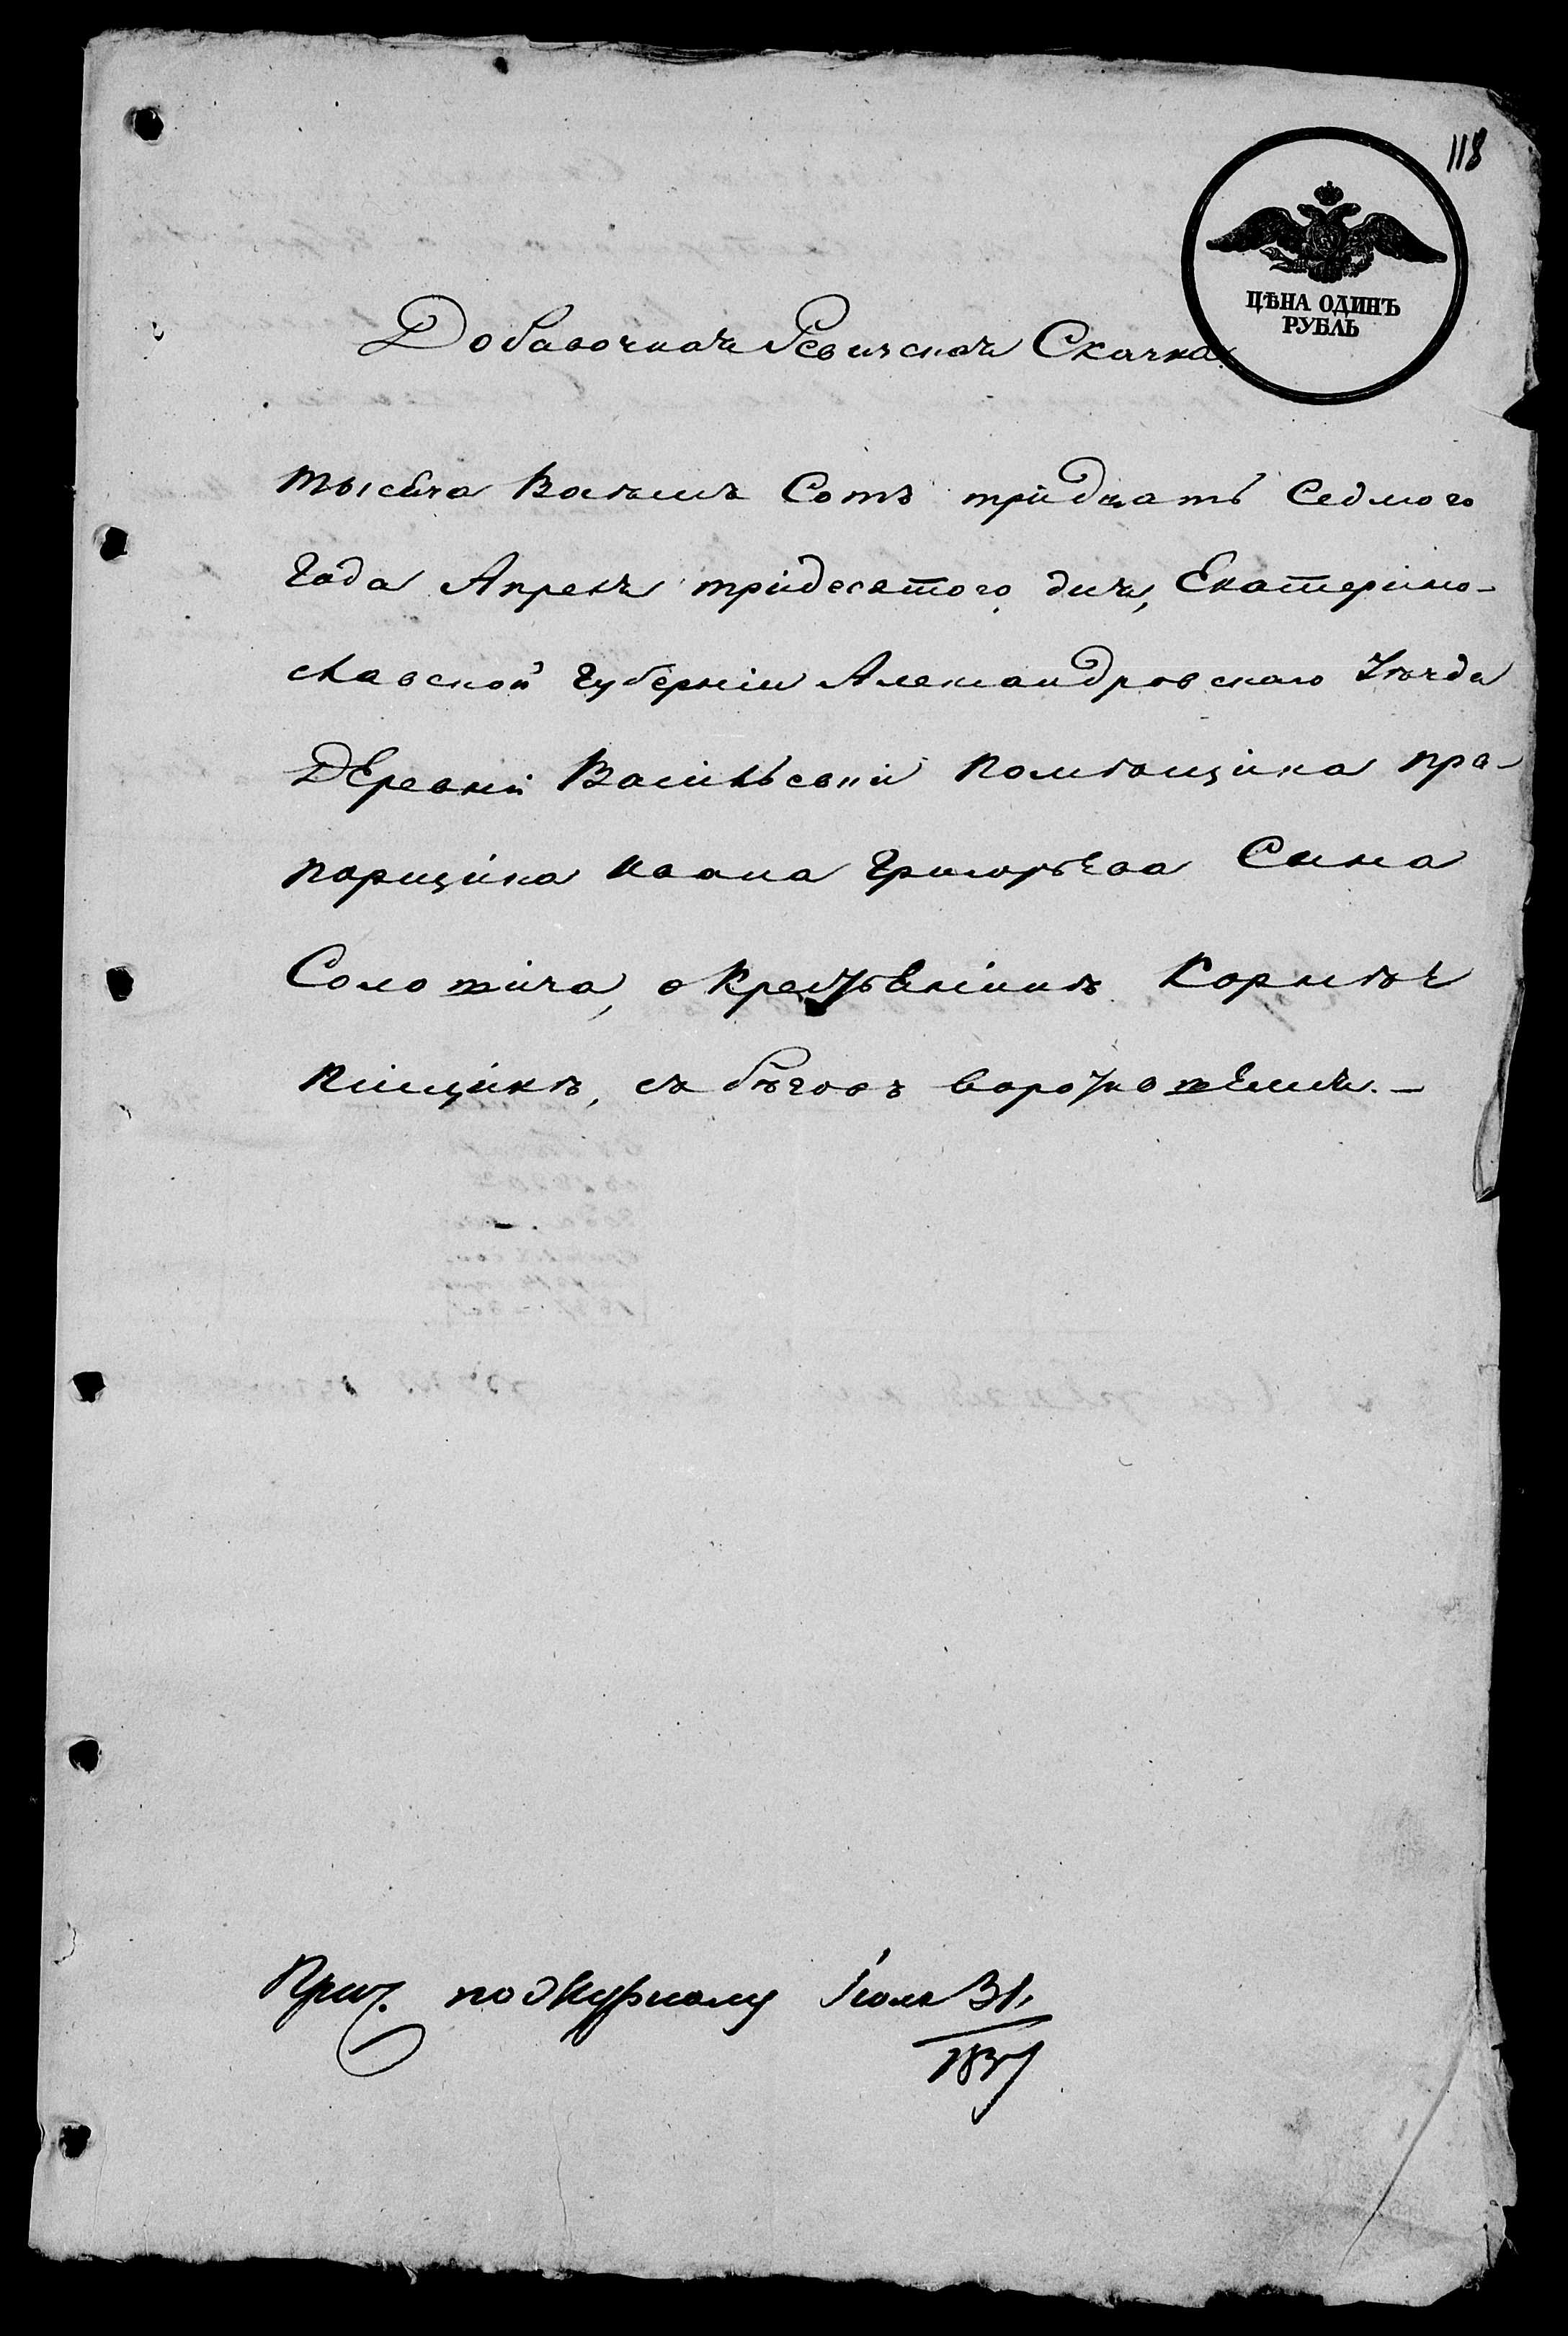 118
ЦѢНА ОДИНЪ
РУБЛЬ
Добавочная Ревизская Скаска
тысяча Восѣмъ Сотъ тридцать Седмого
Года Апреля тридесятого дня, Екатерино-
славской Губерніи Александровскаго Уѣзда
Деревни Васильевки Помѣщика пра-
порщика Ивана Григорьева Сина
Соло, о Крестьянинѣ Корнѣѣ
Пищикѣ, съ бѣговъ
по Журналу Іюля 31,
1837